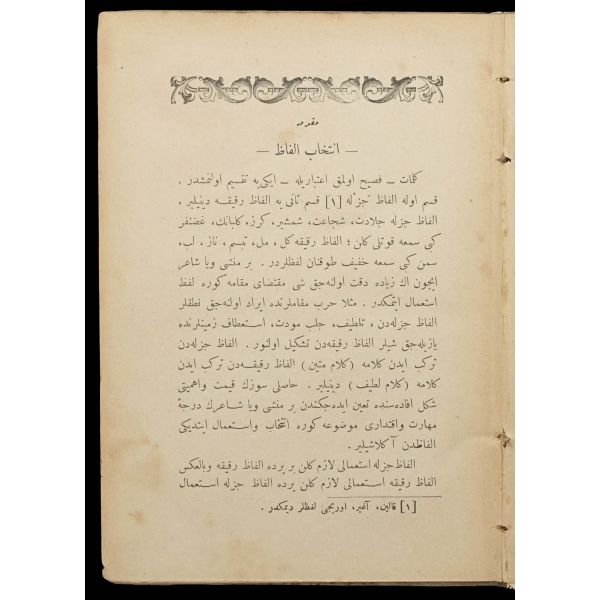 مقدمه
— انتخاب الفاظ —
كلمات — فصيح اولمق اعتباريله — ايكى‌يه تقسيم اولنمشدر .
قسم اوله الفاظ جزله [١] قسم ثانى‌يه الفاظ رقيقه دينيلير .
الفاظ جزله جلادت، شجاعت، شمشير، كرز، كلبانك، غضنفر
كبى سمعه قوتلى كلن ؛ الفاظ رقيقه كل ، مل ، تبسم ، ناز ، لب،
سمن كبى سمعه خفيف طوقنان لفظلردر . بر منشى ويا شاعر
ايچون اك زياده دقت اولنه‌جق شى مقتضاى مقامه كوره لفظ
استعمال ايتمكدر . مثلا حرب مقاملرنده ايراد اولنه‌جق نطقلر
الفاظ جزله‌دن ، تلطيف، جلب مودت، استعطاف زمينلرنده
يازيله‌جق شيلر الفاظ رقيقه‌دن تشكيل اولنور . الفاظ جزله‌دن
تركب ايدن كلامه (كلام متين) الفاظ رقيقه‌دن تركب ايدن
كلامه (كلام لطيف) دينيلير . حاصلى سوزك قيمت واهميتى
شكل افاده‌سنده تعين ايده‌جكندن بر منشى ويا شاعرك درجهٔ
مهارت واقتدارى موضوعه كوره انتخاب واستعمال ايتديكى
الفاظدن آ كلاشيلير .
الفاظ جزله استعمالى لازم كلن بر يرده الفاظ رقيقه وبالعكس
الفاظ رقيقه استعمالى لازم كلن يرده الفاظ جزله استعمال
[١] قالين، آغير، اوريجى لفظلر ديمكدر .